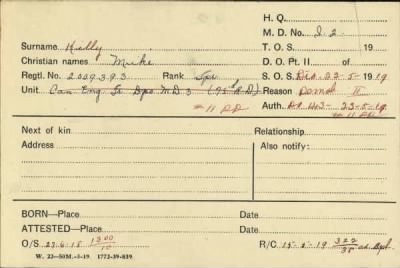 H. Q.
M. D. No. 2.
Surname Kelly T. O. S. 19
Christian names Mike D. O. Pt. II of
Regtl. No. 2009393 Rank Spr S. O. S. Dis. 22-5-1919
Unit Can Eng Tr Dpo MD 3 Reason Demob II
# 11 DD Auth. 143- 23-5-19
# 11 DD
Next of kin Relationship
Address Also notify:
BORN—Place Date
ATTESTED—Place Date
O/S 27-6-18 1300/10 R/C 15-5-19 322/38
W. 22—50M.-5-19 1772-39-839.